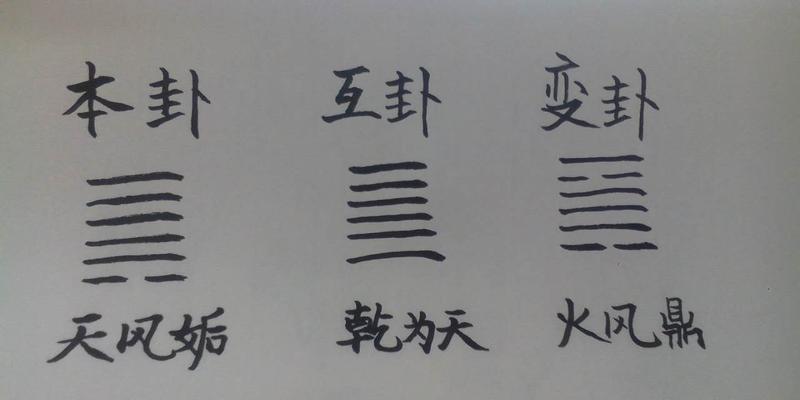 本卦 互卦 变卦
天风姤 乾为天 火风鼎